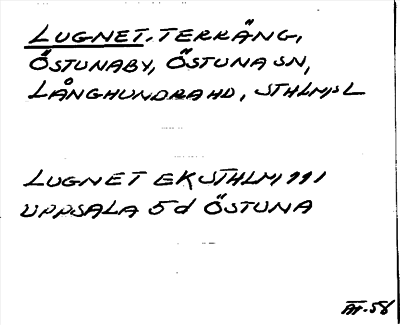 LUGNET, TERRÄNG,
ÖSTUNABY, ÖSTUNA SN,
LÅNGHUNDRA HD, STHLMS L
LUGNET EK STHLM 111
UPPSALA 5d ÖSTUNA